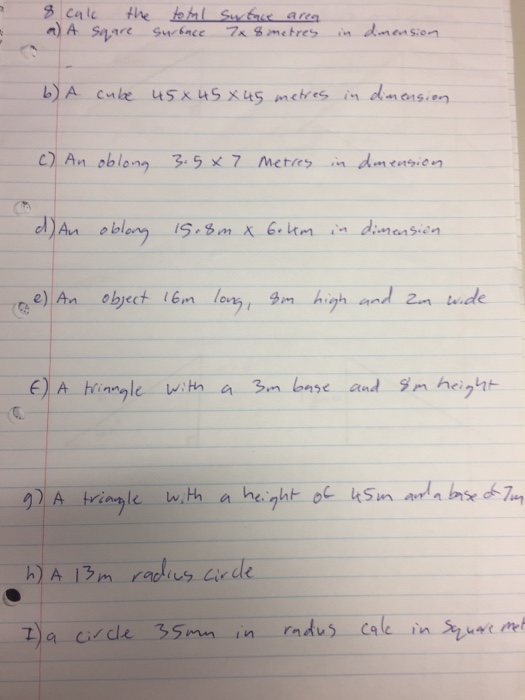 8 calc the total surface area
a) A sqare surface 7x8 metres in dmension
b) A cube 45x45x45 metres in dimension
c) An oblong 3.5 x 7 Metres in dmension
d) An oblong 15.8m x 6.4m in dimension
e) An object 16m long, 8m high and 2m wide
f) A triangle with a 3m base and 8m height
g) A triangle with a height of 45m and a base of 7m
h) A 13m radius circle
I) a circle 35mm in radus calc in square met